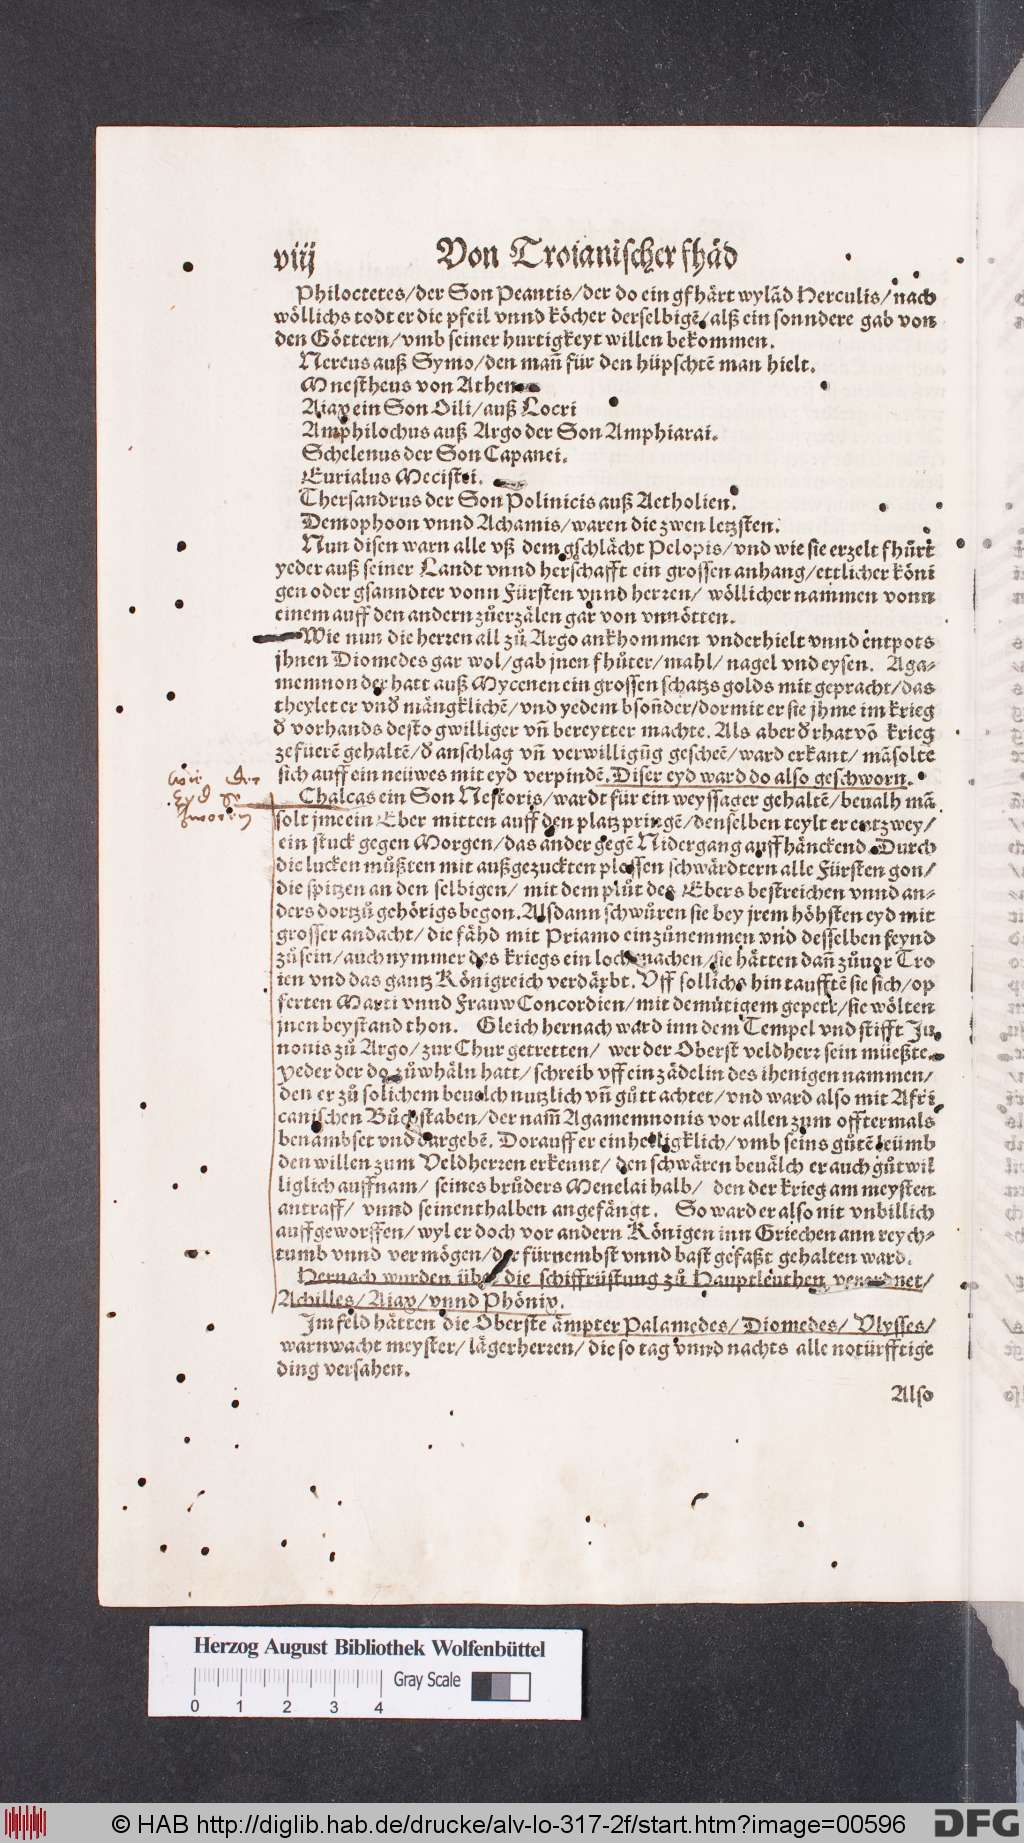 viij Von Troianischer fhäd
Philoctetes/der Son Peantis/der do ein gfhärt wylād Herculis/nach
wöllichs todt er die pfeil vnnd köcher derselbigē/alß ein sonndere gab von
den Göttern/vmb seiner hurtigkeyt willen bekommen.
Nereus auß Symo/den mañ für den hüpschtē man hielt.
Mnestheus von Athen
Aiax ein Son Oili/auß Locri
Amphilochus auß Argo der Son Amphiarai.
Schelenus der Son Capanei.
Eurialus Mecistei.
Thersandrus der Son Polinicis auß Aetholien.
Demophoon vnnd Achamis/waren die zwen letzsten.
Nun disen warn alle vß dem gschlächt Pelopis/vnd wie sie erzelt fhürt
yeder auß seiner Landt vnnd herschafft ein grossen anhang/ettlicher köni
gen oder gsanndter vonn Fürsten vnnd herren/ wöllicher nammen vonn
einem auff den andern zůerzälen gar von vnnötten.
Wie nun die herren all zů Argo ankhommen vnderhielt vnnd entpots
jhnen Diomedes gar wol/gab jnen fhůter/mahl/ nagel vnd eysen. Aga-
memnon der hatt auß Mycenen ein grossen schatzs golds mit gepracht/das
theylet er vnd̄ mängklichē/vnd yedem bsoñder/dormit er sie jhme im krieg
d̄ vorhands desto gwilliger vñ bereytter machte. Als aber d̄ rhat vō krieg
zefuerē gehaltē/d̄ anschlag vñ verwilligūg gescheē/ward erkant/ mā solte
sich auff ein neüwes mit eyd verpindē. Diser eyd ward do also geschworn.
Wie der
Eyd ge
schworen
Chalcas ein Son Nestoris/wardt für ein weyssager gehaltē/beualh mā
solt jme ein Eber mitten auff den platz pringē/denselben teylt er entzwey/
ein stuck gegen Morgen/das ander gegē Nidergang auff hänckend. Durch
die lucken můßten mit außgezuckten plossen schwärdtern alle Fürsten gon/
die spitzen an den selbigen/ mit dem plůt des Ebers bestreichen vnnd an-
ders dortzů gehörigs begon. Alsdann schwůren sie bey jrem höhsten eyd mit
grosser andacht/ die fähd mit Priamo einzůnemmen vnd desselben feynd
zůsein/auch nymmer des kriegs ein loch machen/sie hätten dañ zůuor Tro
ien vnd das gantz Königreich verdärbt. Vff sollichs hin taufftē sie sich/op
ferten Marti vnnd Frauw Concordien/mit demütigem gepett/sie wölten
jnen beystand thon. Gleich hernach ward inn dem Tempel vnd stifft Ju
nonis zů Argo/zur Chur getretten/ wer der Oberst veldherr sein müeßte.
Yeder der do zůwhäln hatt/schreib vff ein zädelin des ihenigen nammen/
den er zů solichem beuelch nutzlich vñ gůtt achtet/vnd ward also mit Afri
canischen Bůchstaben/der nam̄ Agamemnonis vor allen zum offtermals
benambset vnd dargebē. Dorauff er einhelligklich/vmb seins gůtē leümb
den willen zum Veldherren erkennt/ den schwären beuälch er auch gůtwil
liglich auffnam/ seines brůders Menelai halb/ den der krieg am meysten
antraff/ vnnd seinenthalben angefängt. So ward er also nit vnbillich
auffgeworffen/wyl er doch vor andern Königen inn Griechen ann reych-
tumb vnnd vermögen/der fürnembst vnnd bast gefaßt gehalten ward.
Hernach wurden über die schiffrüstung zů Hauptleüthen verordnet/
Achilles/Aiax/vnnd Phönix.
Im feld hätten die Oberste ämpter Palamedes/Diomedes/ Vlysses/
warn wacht meyster/lägerherren/die so tag vnnd nachts alle notürfftige
ding versahen.
Also
Herzog August Bibliothek Wolfenbüttel
Gray Scale
0 1 2 3 4
© HAB http://diglib.hab.de/drucke/alv-lo-317-2f/start.htm?image=00596 DFG